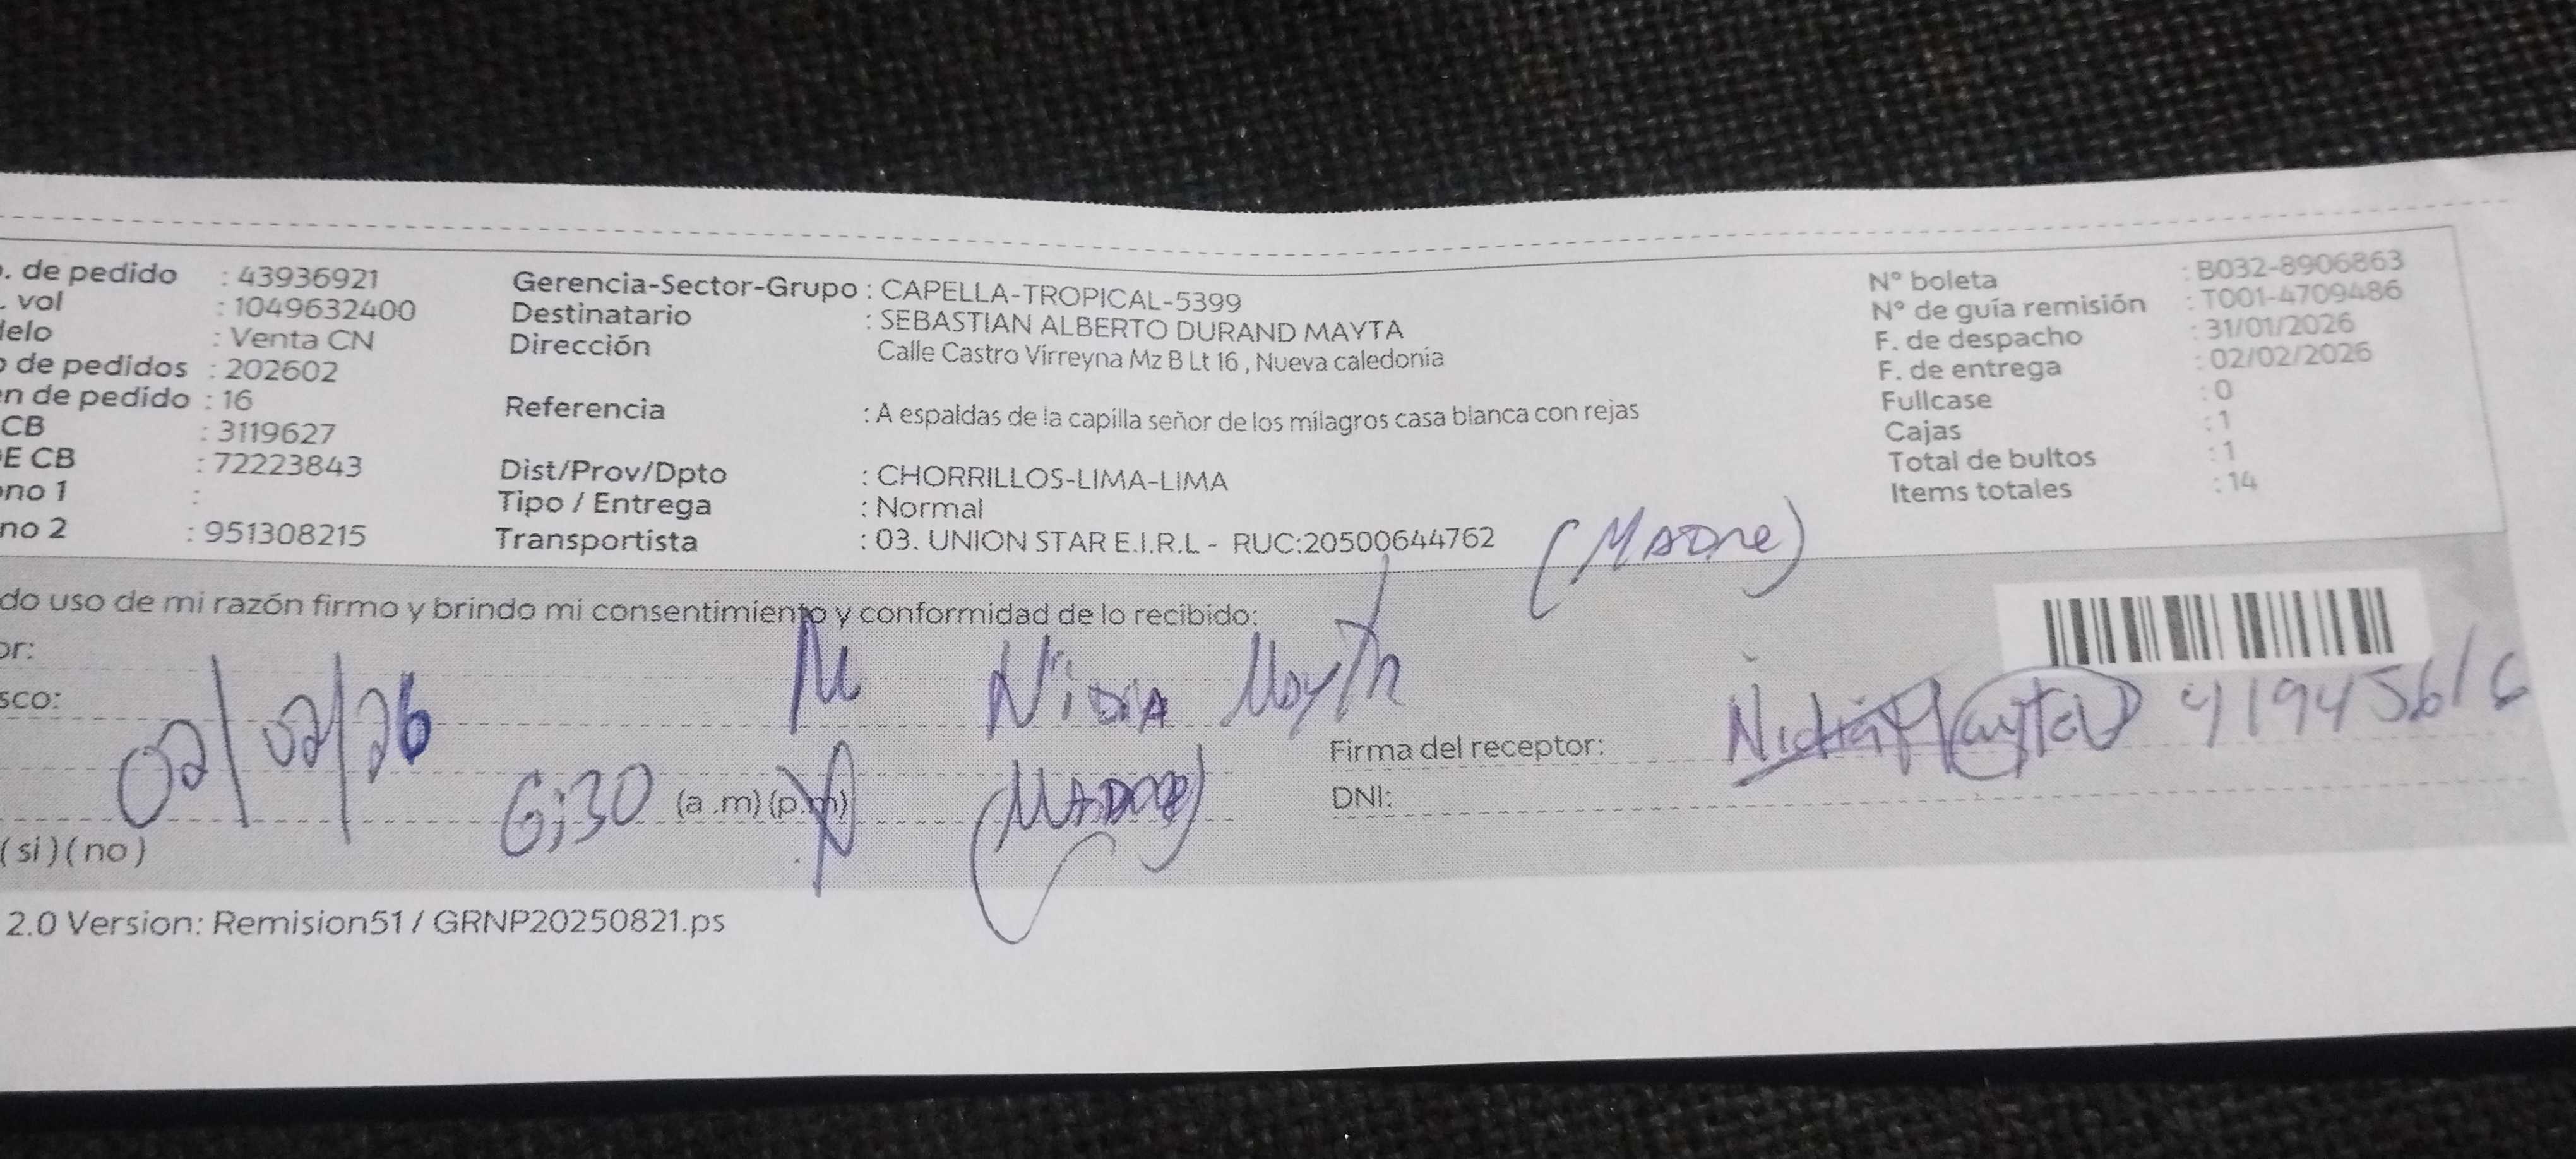 . de pedido : 43936921
. vol : 1049632400
delo : Venta CN
o de pedidos : 202602
en de pedido : 16
CB : 3119627
E CB : 72223843
ono 1 :
no 2 : 951308215
Gerencia-Sector-Grupo : CAPELLA-TROPICAL-5399
Destinatario : SEBASTIAN ALBERTO DURAND MAYTA
Dirección Calle Castro Virreyna Mz B Lt 16 , Nueva caledonia
Referencia : A espaldas de la capilla señor de los milagros casa blanca con rejas
Dist/Prov/Dpto : CHORRILLOS-LIMA-LIMA
Tipo / Entrega : Normal
Transportista : 03. UNION STAR E.I.R.L - RUC:20500644762
N° boleta : B032-8906863
N° de guía remisión : T001-4709486
F. de despacho : 31/01/2026
F. de entrega : 02/02/2026
Fullcase : 0
Cajas : 1
Total de bultos : 1
Items totales : 14
(MADre)
do uso de mi razón firmo y brindo mi consentimiento y conformidad de lo recibido:
or:
sco:
M NiDiA Mayta
02/02/26
Firma del receptor: Nidia Mayta 41945616
6:30 (a .m) (p.m) (MADRE)
DNI:
( si ) ( no )
2.0 Version: Remision51 / GRNP20250821.ps